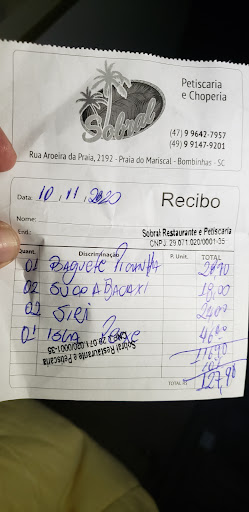 Sobral
Petiscaria
e Choperia
(47) 9 9642-7957
(49) 9 9147-9201
Rua Aroeira da Praia, 2192 - Praia do Mariscal - Bombinhas - SC
Data: 10, 11, 2020 Recibo
Nome:
End.: Sobral Restaurante e Petiscaria
CNPJ: 29.071.020/0001-35
Quant. Discriminação P. Unit. TOTAL
01 BAGUETE
02 SUCO ABACAXI 18,00
02 SIRI
01 ISCA PEIXE
Sobral Restaurante e Petiscaria
CNPJ: 29.071.020/0001-35
TOTAL R$ 127,90